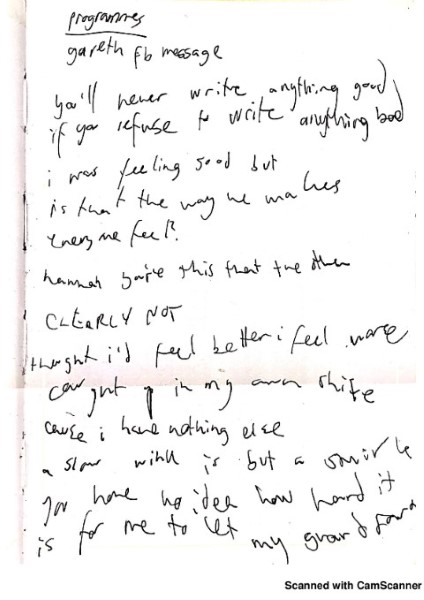 programmes
gareth fb message
you'll never write anything good
if you refuse to write anything bad
i was feeling good but
is that the way he makes
everyone feel?
hannah you're this that the other
CLEARLY NOT
thought i'd feel better i feel worse
caught up in my own shite
cause i have nothing else
a slow wink is but a
you have no idea how hard it
is for me to let my guard down
Scanned with CamScanner